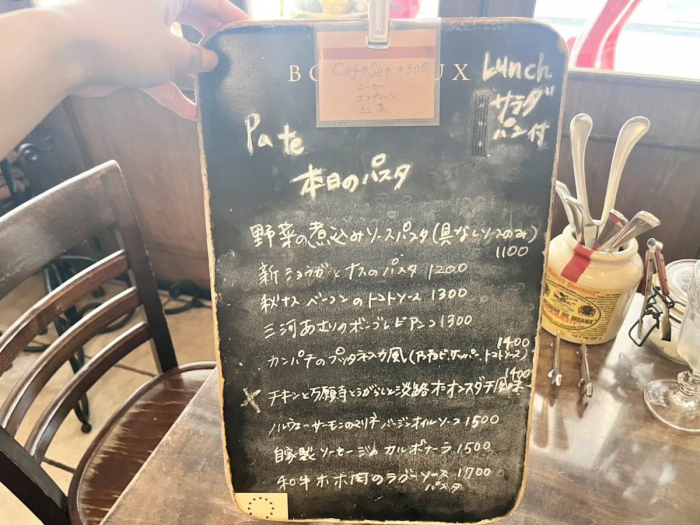 Lunch
サラダ
パン付
Cafe Set +300
コーヒー
エスプレッソ
紅茶
Pate
本日のパスタ
野菜の煮込みソースパスタ(具なしソースのみ)
1100
新ショウガとナスのパスタ 1200
秋ナス ベーコンのトマトソース 1300
三河あさりのボンゴレビアンコ 1300
カンパチのプッタネスカ風
1400
チキンと万願寺とうがらしと淡路
1400
ノルウェーサーモンのマリネ バージンオイルソース 1500
自家製ソーセージのカルボナーラ 1500
和牛ホホ肉のラグーソース 1700
パスタ